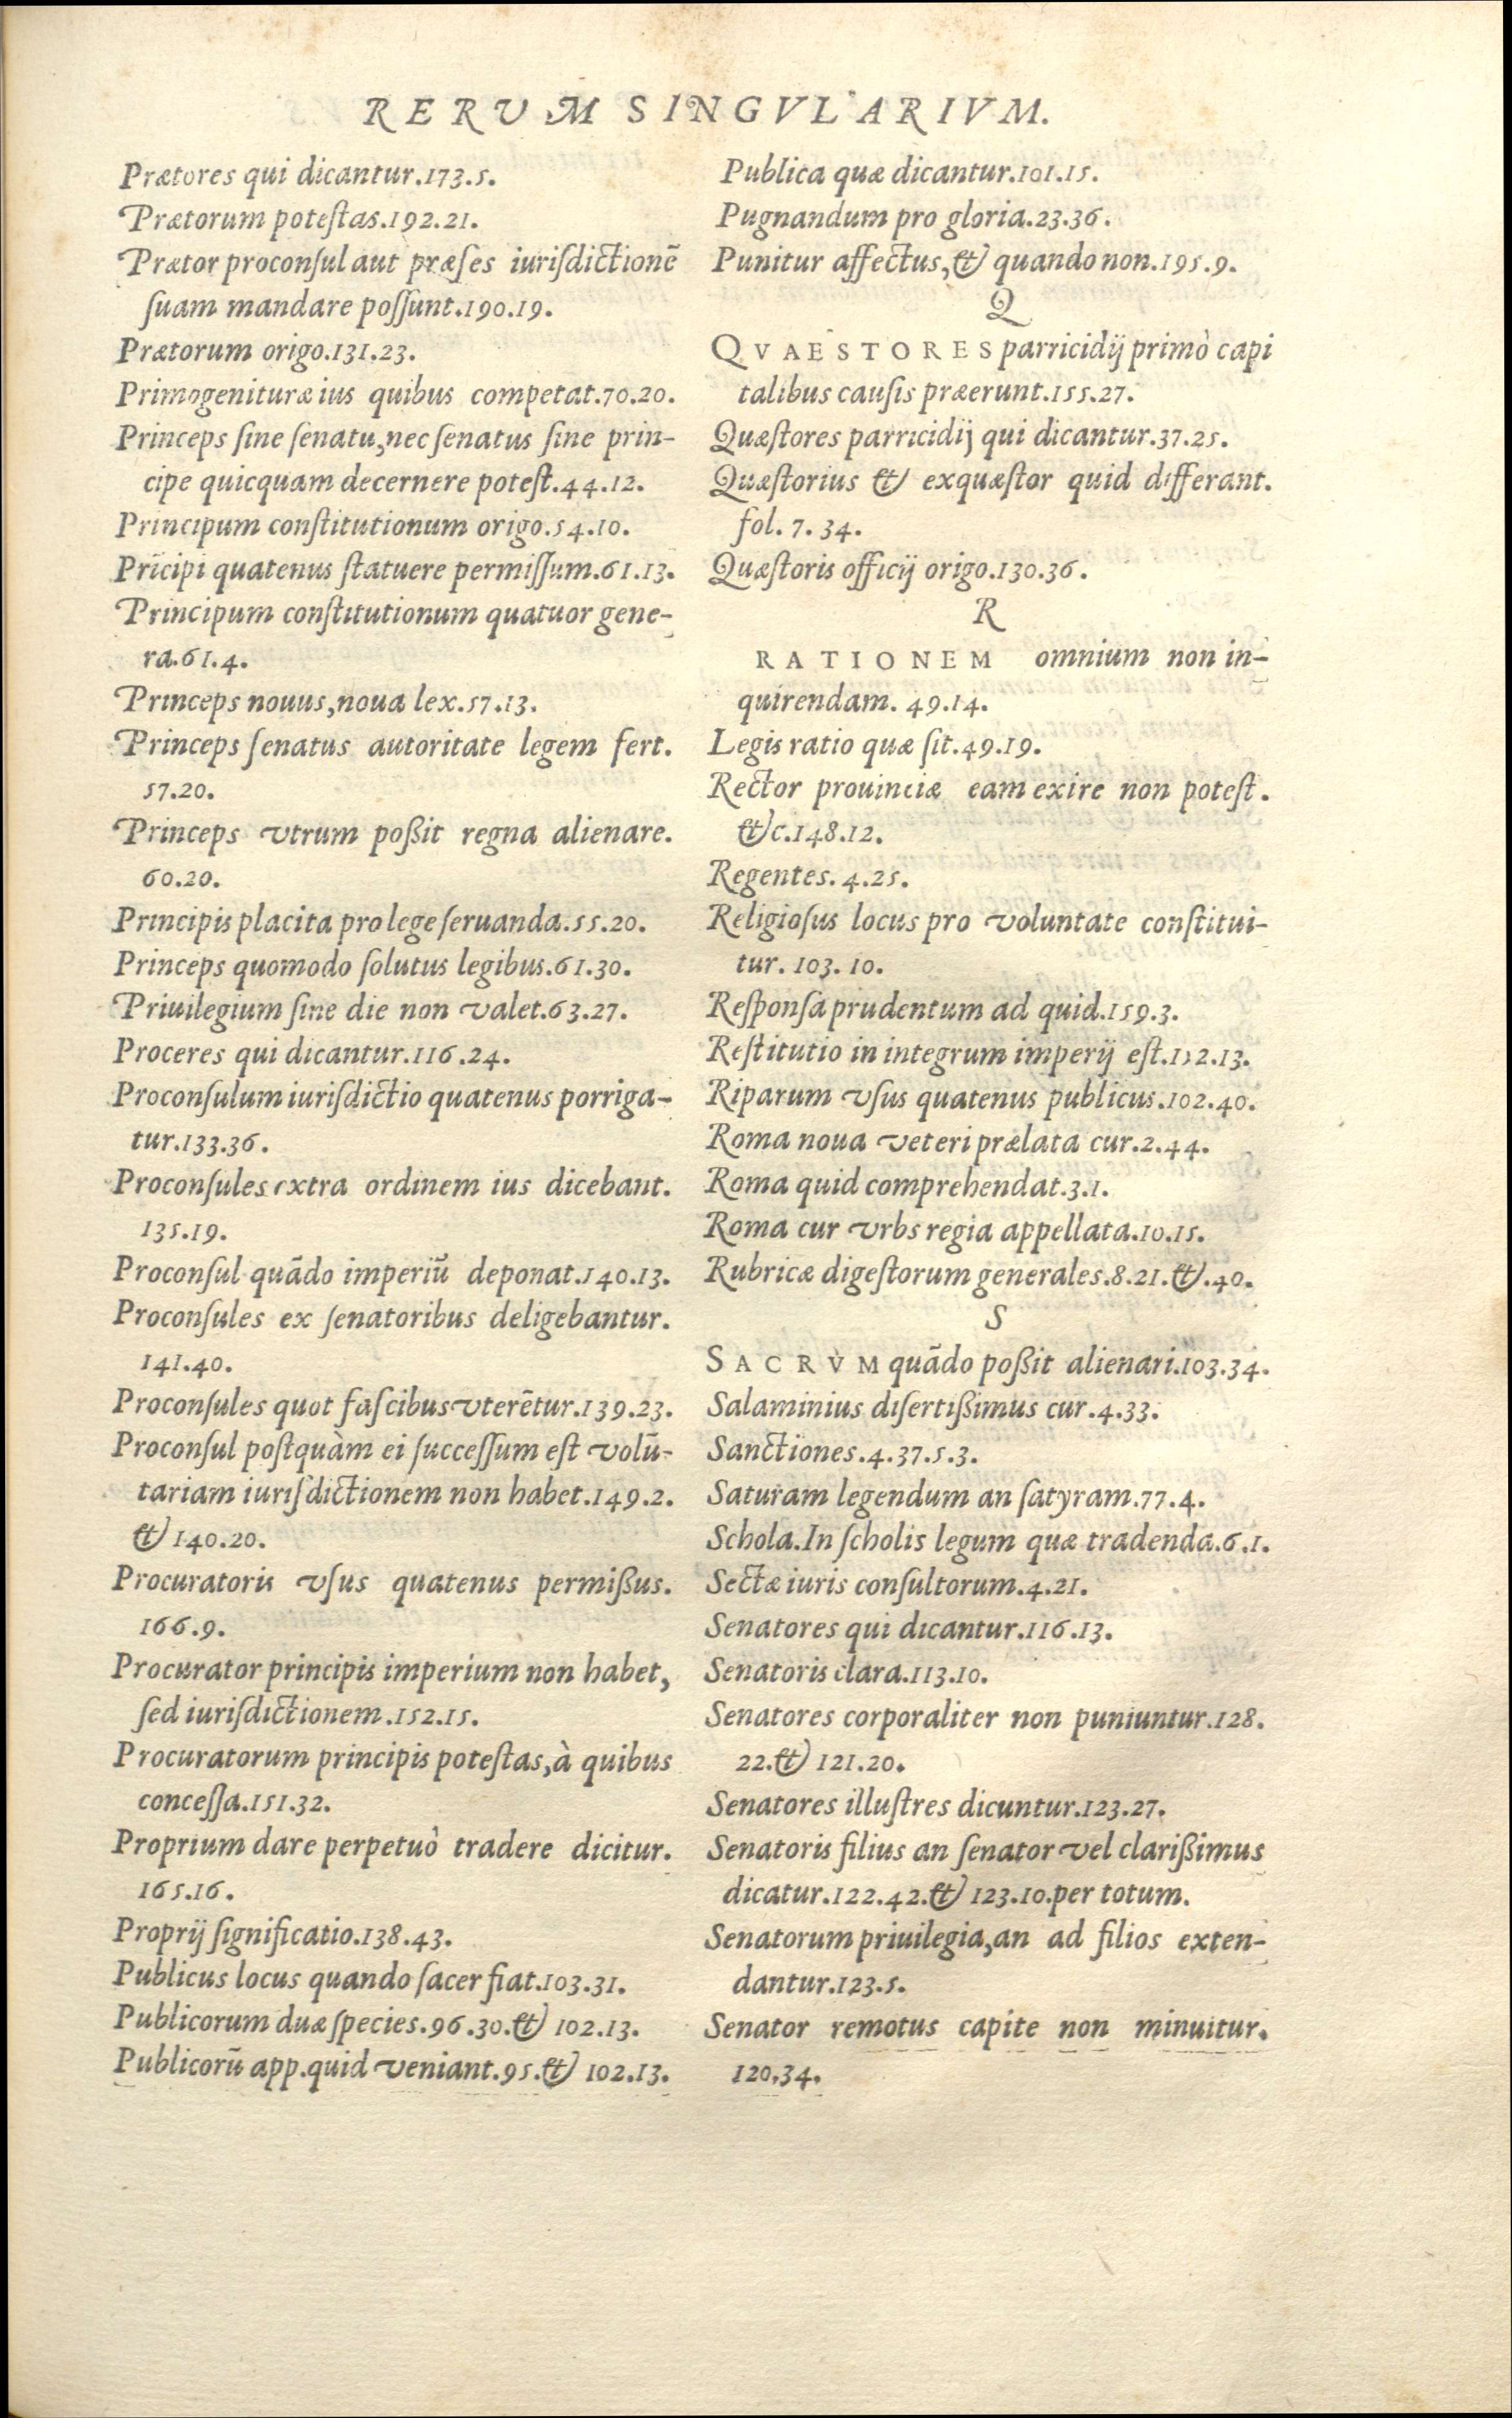 RERUM SINGVLARIVM.
Prætores qui dicantur.173.5.
Prætorum poteſtas.192.21.
Prætor proconſul aut præſes iuriſdictionē
ſuam mandare poſſunt.190.19.
Prætorum origo.131.23.
Primogenituræ ius quibus competat.70.20.
Princeps ſine ſenatu, nec ſenatus ſine prin-
cipe quicquam decernere poteſt.44.12.
Principum conſtitutionum origo.54.10.
Prīcipi quatenus ſtatuere permiſſum.61.13.
Principum conſtitutionum quatuor gene-
ra.61.4.
Princeps nouus, noua lex.57.13.
Princeps ſenatus autoritate legem fert.
57.20.
Princeps vtrum poßit regna alienare.
60.20.
Principis placita pro lege ſeruanda.55.20.
Princeps quomodo ſolutus legibus.61.30.
Priuilegium ſine die non valet.63.27.
Proceres qui dicantur.116.24.
Proconſulum iuriſdictio quatenus porriga-
tur.133.36.
Proconſules extra ordinem ius dicebant.
135.19.
Proconſul quādo imperiū deponat.140.13.
Proconſules ex ſenatoribus deligebantur.
141.40.
Proconſules quot faſcibus vterētur.139.23.
Proconſul poſtquàm ei ſucceſſum eſt volū-
tariam iuriſdictionem non habet.149.2.
& 140.20.
Procuratoris vſus quatenus permißus.
166.9.
Procurator principis imperium non habet,
ſed iuriſdictionem.152.15.
Procuratorum principis poteſtas, à quibus
conceſſa.151.32.
Proprium dare perpetuò tradere dicitur.
165.16.
Proprij ſignificatio.138.43.
Publicus locus quando ſacer fiat.103.31.
Publicorum duæ ſpecies.96.30.& 102.13.
Publicorū app.quid veniant.95.& 102.13.
Publica quæ dicantur.101.15.
Pugnandum pro gloria.23.36.
Punitur affectus, & quando non.195.9.
Q
QVAESTORES parricidij primò capi
talibus cauſis præerunt.155.27.
Quæſtores parricidij qui dicantur.37.25.
Quæſtorius & exquæſtor quid differant.
fol. 7. 34.
Quæſtoris officij origo.130.36.
R
RATIONEM omnium non in-
quirendam. 49.14.
Legis ratio quæ ſit.49.19.
Rector prouinciæ eam exire non poteſt.
&c.148.12.
Regentes. 4.25.
Religioſus locus pro voluntate conſtitui-
tur. 103. 10.
Reſponſa prudentum ad quid.159.3.
Reſtitutio in integrum imperij eſt.112.13.
Riparum vſus quatenus publicus.102.40.
Roma noua veteri prælata cur.2.44.
Roma quid comprehendat.3.1.
Roma cur vrbs regia appellata.10.15.
Rubricæ digeſtorum generales.8.21.&.40.
S
SACRVM quādo poßit alienari.103.34.
Salaminius diſertißimus cur.4.33.
Sanctiones.4.37.5.3.
Saturam legendum an ſatyram.77.4.
Schola.In ſcholis legum quæ tradenda.6.1.
Sectæ iuris conſultorum.4.21.
Senatores qui dicantur.116.13.
Senatoris clara.113.10.
Senatores corporaliter non puniuntur.128.
22.& 121.20.
Senatores illuſtres dicuntur.123.27.
Senatoris filius an ſenator vel clarißimus
dicatur.122.42.& 123.10.per totum.
Senatorum priuilegia, an ad filios exten-
dantur.123.5.
Senator remotus capite non minuitur.
120.34.